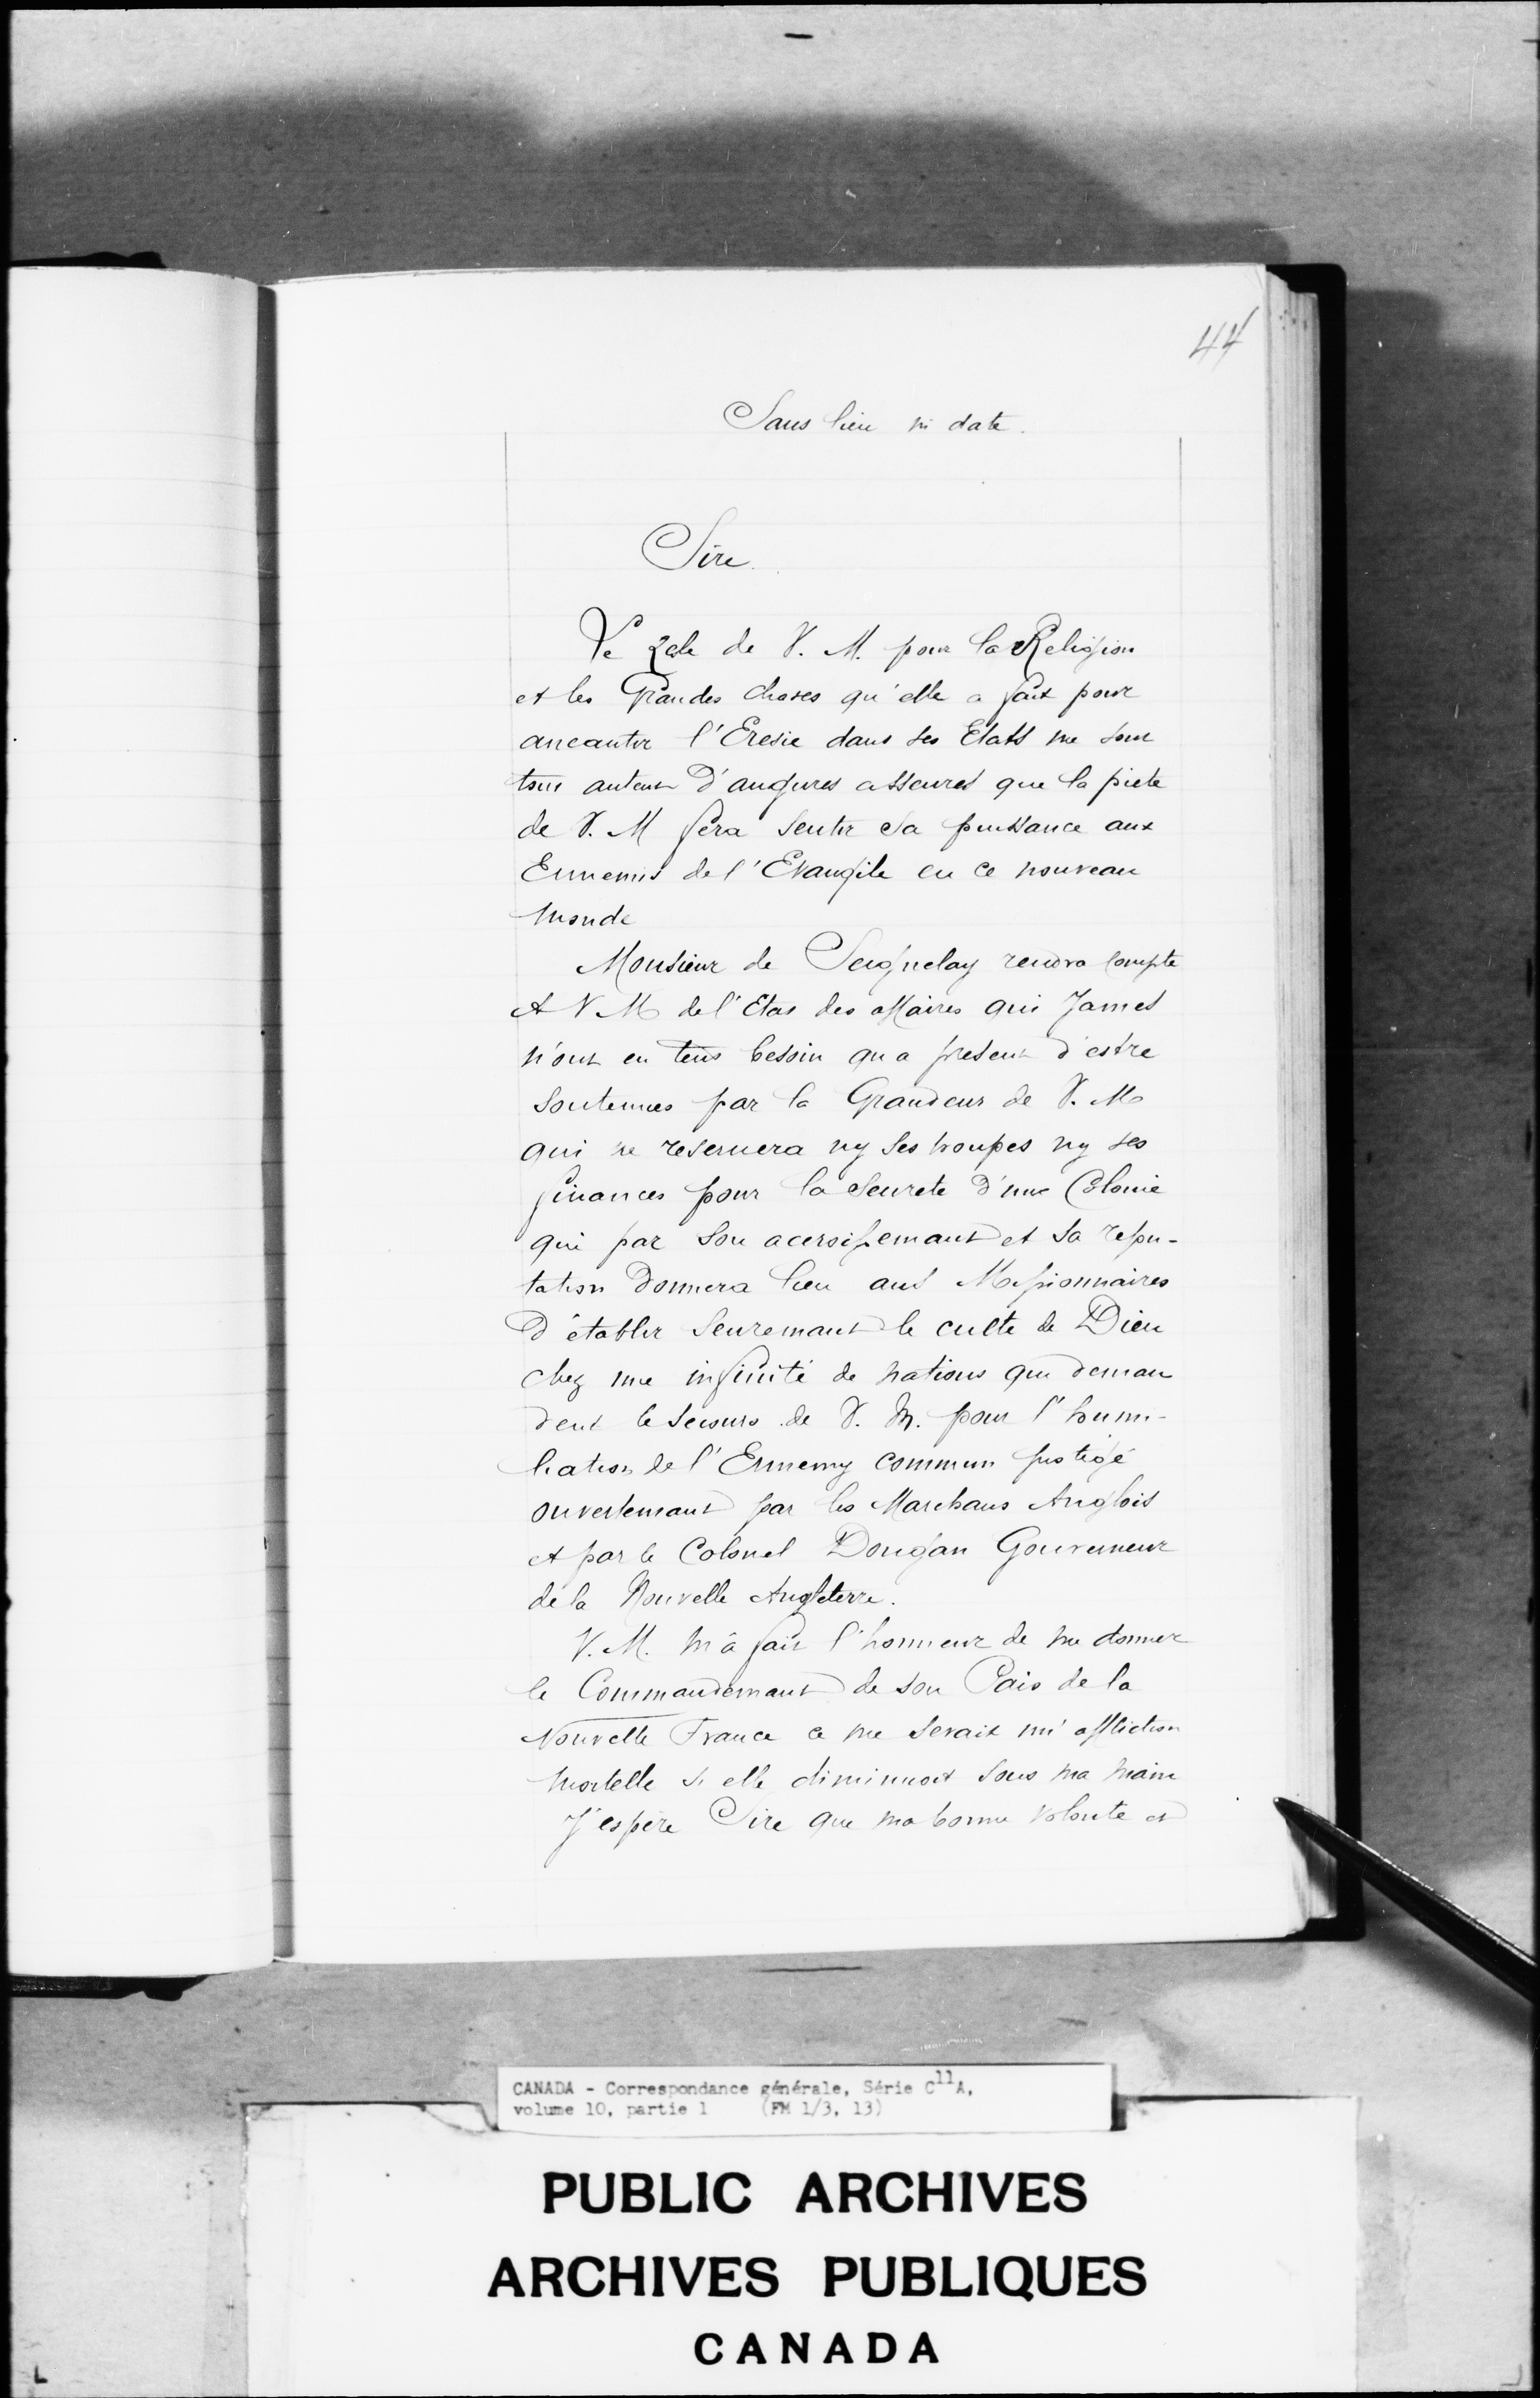 44
Sans lieu ni date.
Sire.
Le Zele de V. M. pour la Religion
et les Grandes choses qu'elle a fait pour
aneantir l'Eresie dans ses Etats me sont
tous autant d'augures asseurés que la piete
de V. M fera sentir sa puissance aux
Ennemis de l'Evangile en ce nouveau
monde
Monsieur de Seignelay rendra compte
A V M de l'Etat des affaires qui James
n'ont eu tens besoin qu a present d'estre
soutenues par la Grandeur de V. M
qui ne reservera ny ses troupes ny ses
finances pour la seurete d'une Colonie
qui par son acroissemant et sa repu-
tation donnera lieu aus Missionnaires
d'établir seuremant le culte de Dieu
chez une infinité de nations qui deman
dent le secours de V. M. pour l'humi-
liation de l'Ennemy commun protégé
ouvertemant par les Marchans Anglois
et par le Colonel Dongan Gouverneur
de la Nouvelle Angleterre.
V. M. m'a fait l'honneur de me donner
le Commandemant de son Pais de la
Nouvelle France ce me serait un' affliction
mortelle si elle diminuoit sous ma main
J'espère Sire que ma bonne volonte et
CANADA - Correspondance générale, Série C11A,
volume 10, partie 1 (FM 1/3, 13)
PUBLIC ARCHIVES
ARCHIVES PUBLIQUES
CANADA
L